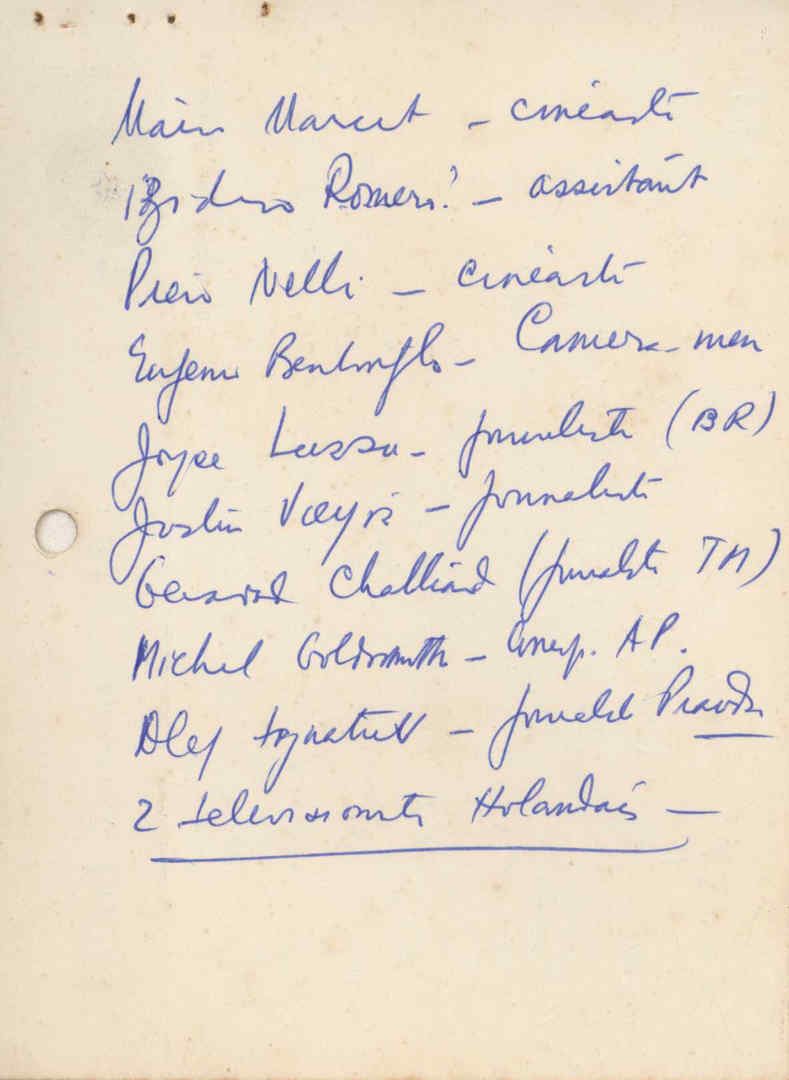 Mário Marret - cinéaste
Isidro Romero - assistant
Piero Nelli - cinéaste
Eugenio Bentivoglio - Camera-men
Joyce Lussu - journaliste (BR)
Justin Vieyra - journaliste
Gérard Challiand (journaliste TM)
Michel Goldsmith - Corresp. AP.
Oleg Ignatiev - journaliste Pravda
2 televisionistes Holandais -